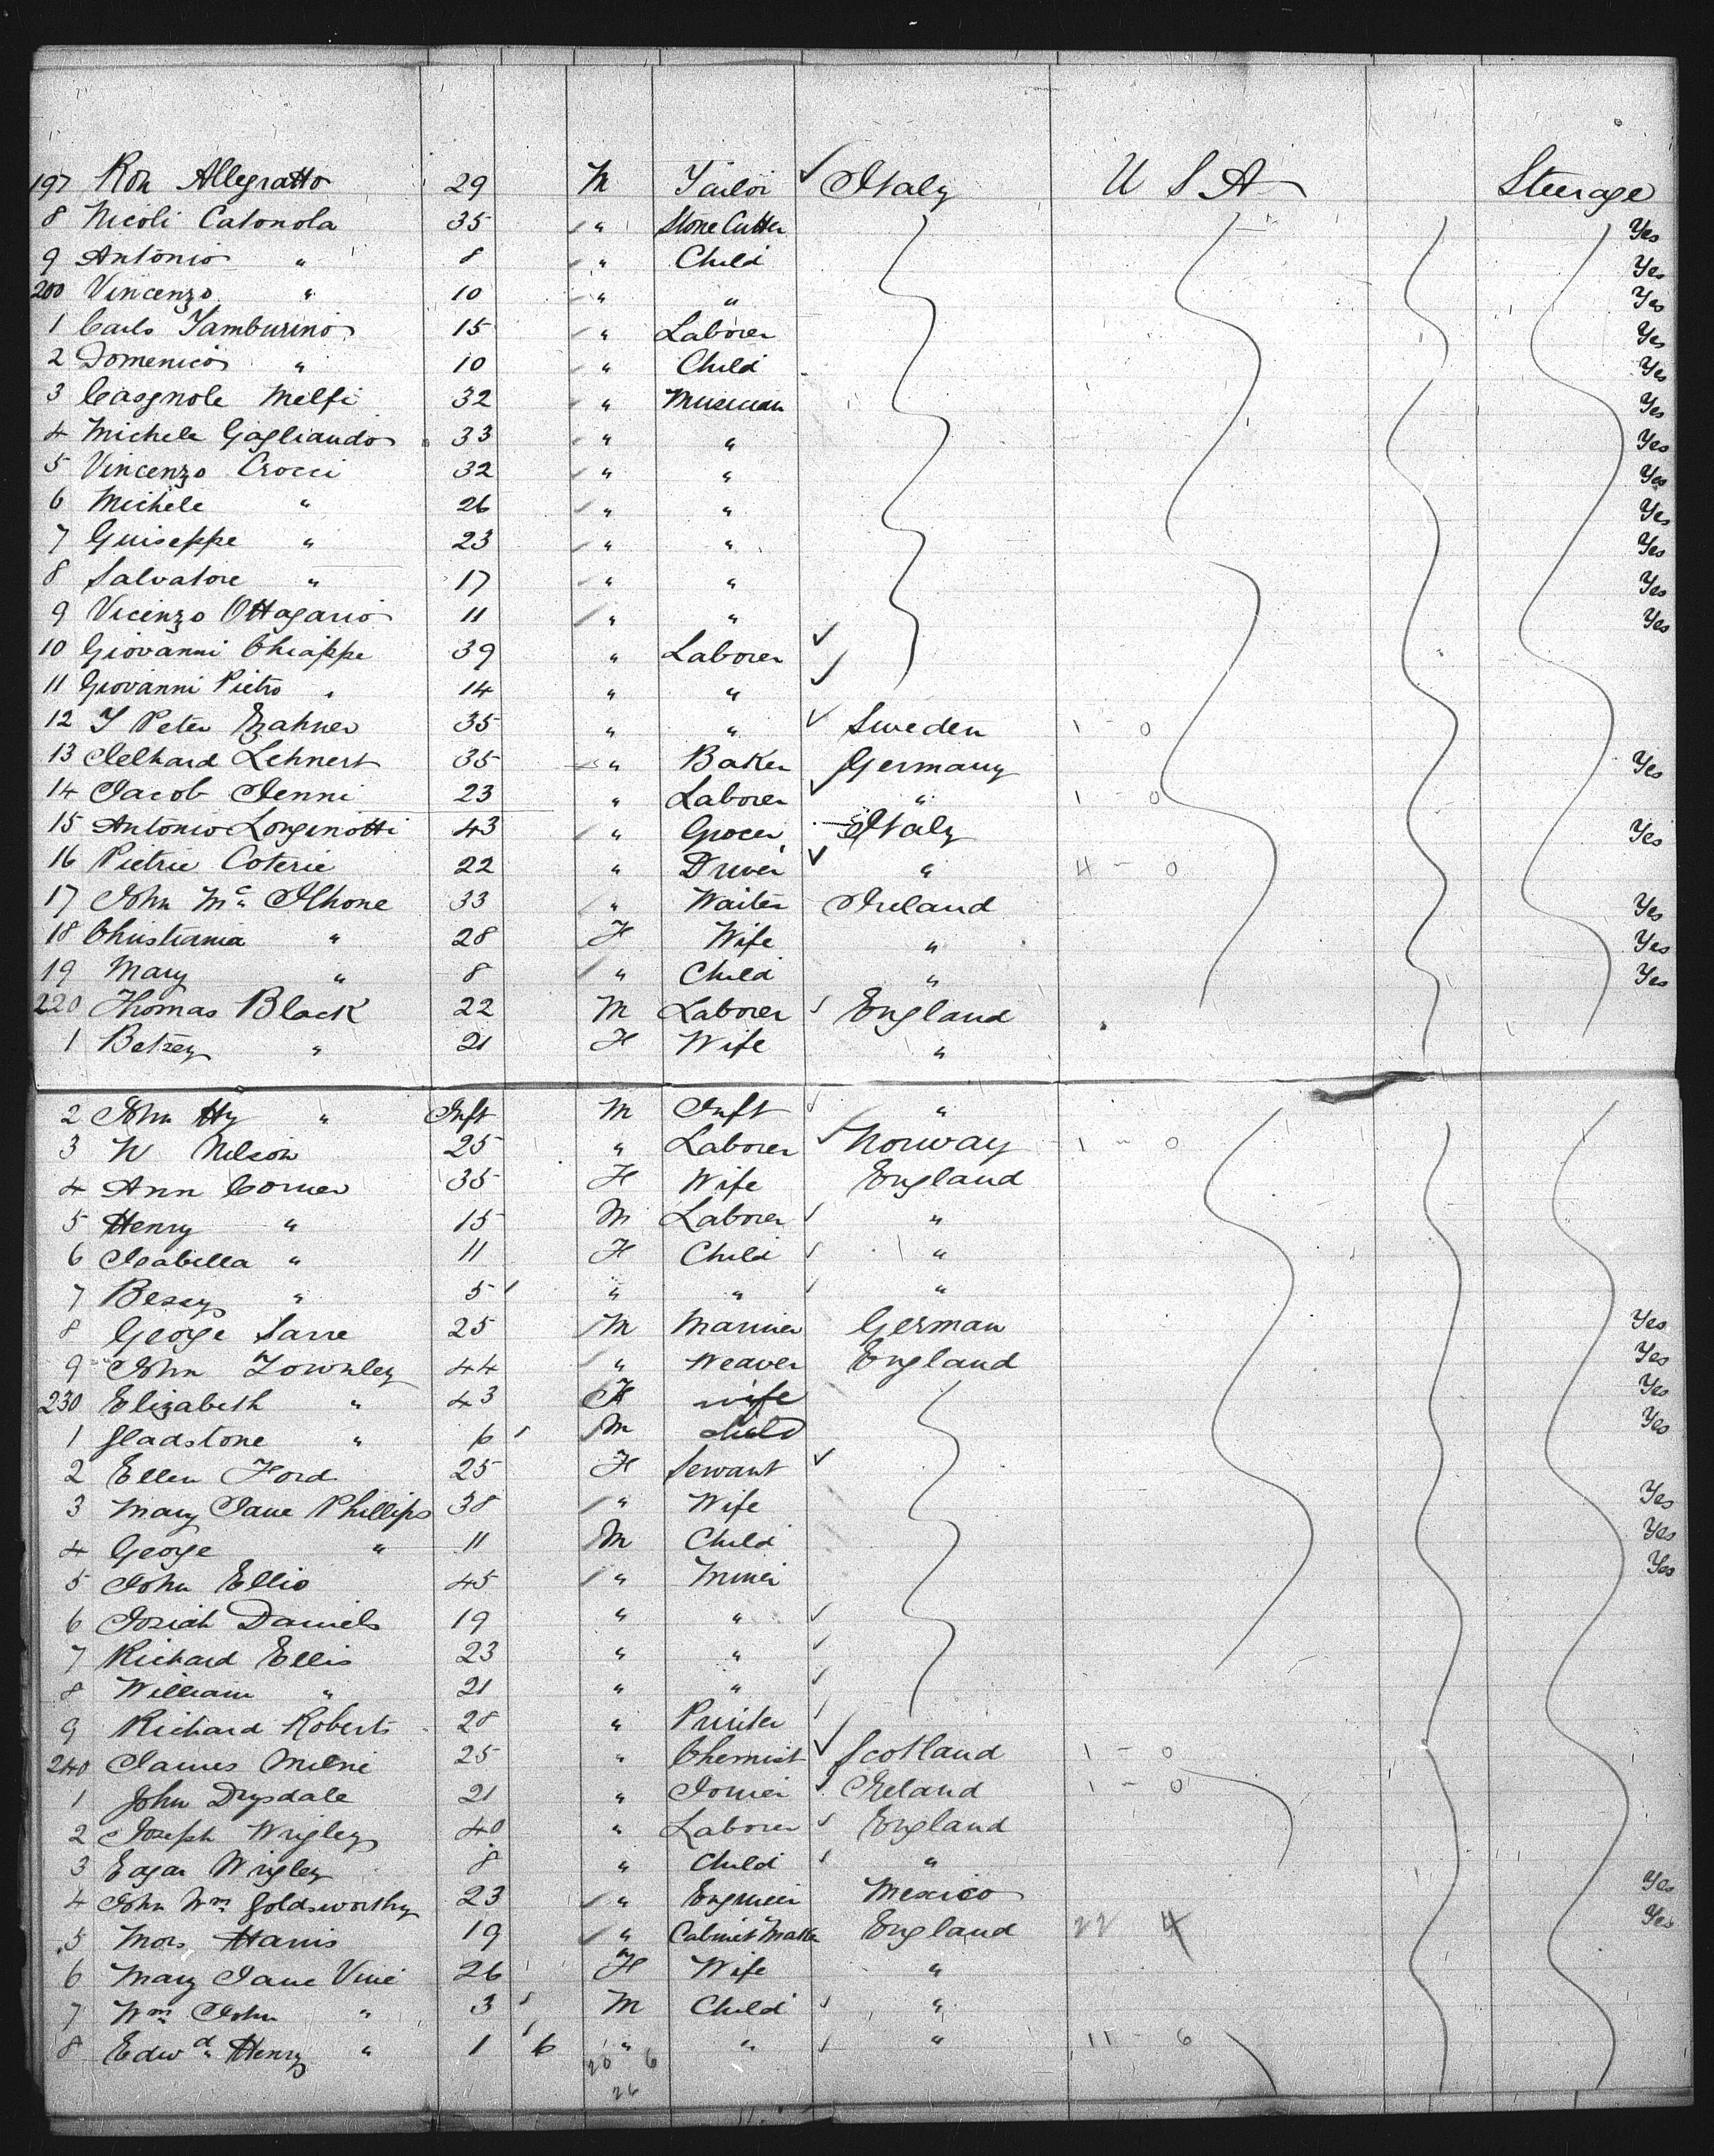 197 Ron Allegratto 29 M Tailor ✓ Italy U S A Steerage
8 Nicoli Catonola 35 " Stone Cutter Yes
9 Antonio " 8 " Child Yes
200 Vincenzo " 10 " " Yes
1 Carlo Tamburino 15 " Laborer Yes
2 Domenico " 10 " Child Yes
3 Casgnole Melfi 32 " Musician Yes
4 Michele Gagliando 33 " " Yes
5 Vincenzo Crocci 32 " " Yes
6 Michele " 26 " " Yes
7 Guiseppe " 23 " " Yes
8 Salvatore " 17 " " Yes
9 Vicenzo Ottagario 11 " " Yes
10 Giovanni Chiappe 39 " Laborer ✓
11 Giovanni Pietro " 14 " " ✓
12 Peter 35 " " ✓ Sweden 1 - 0
13 Lehnert 35 " Baker Germany Yes
14 Jacob Jenni 23 " Laborer ✓ " 1 - 0
15 Antonio Longinotti 43 " Grocer Italy Yes
16 Pietrie Coterie 22 " Driver ✓ " 4 - 0
17 John Mc Ilhone 33 " Waiter Ireland Yes
18 Christiania " 28 F Wife " Yes
19 Mary " 8 " Child " Yes
220 Thomas Black 22 M Laborer ✓ England
1 Betsey " 21 F Wife "
2 John Hy " Inft M Inft ✓ "
3 W Nelson 25 " Laborer ✓ Norway 1 - 0
4 Ann Corner 35 F Wife England
5 Henry " 15 M Laborer ✓ "
6 Isabella " 11 F Child ✓ "
7 Bessy " 5 " " ✓ "
8 George Sarre 25 M Mariner German Yes
9 John Townley 44 " Weaver England Yes
230 Elizabeth " 43 F wife Yes
1 Gladstone " 6 M child Yes
2 Ellen Ford 25 F Servant ✓
3 Mary Jane Phillips 38 " Wife Yes
4 George " 11 M Child Yes
5 John Ellis 45 " Miner Yes
6 Josiah Daniels 19 " " ✓
7 Richard Ellis 23 " " ✓
8 William " 21 " " ✓
9 Richard Roberts 28 " Printer ✓
240 James Milne 25 " Chemist ✓ Scotland 1 - 0
1 John Drysdale 21 " Joiner ✓ Ireland 1 - 0
2 Joseph Wrigley 40 " Laborer ✓ England
3 Edgar Wrigley 8 " Child ✓ "
4 John Wm Goldsworthy 23 " Engineer Mexico Yes
5 Mors Harris 19 " Cabinet Maker England 22 4 Yes
6 Mary Jane Vine 26 F Wife "
7 Wm John " 3 M Child ✓ "
8 Edwd Henry " 1 6 " " ✓ " 11 - 6
20 6
26